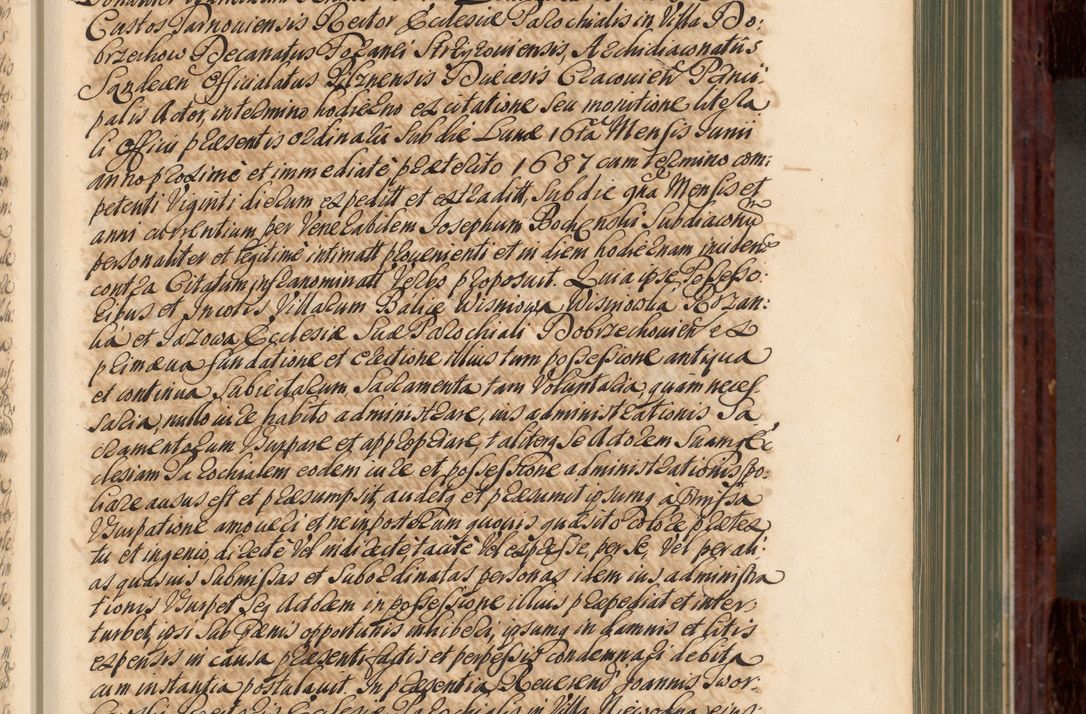 Custos Tarnoviensis Rector Ecclesiæ Parochialis in Villa Do:
brzechow Decanatus Foranei Strzyzoviensis, Archidiaconatus
Sandecen Officialatus Pilznensis Diæcesis Cracovien Princi:
palis Actor, in termino hodierno ex citatione seu monitione litera
li Officii præsentis ordinarii Sub die Lunæ 16ta Mensis Junii
anno proximè et immediatè præterito 1687 cum termino com:
petenti Viginti dierum expeditt et extraditt, Sub die qua Mensis et
anni currentium per Venerabilem Josephum Bochenski Subdiaconu
personaliter et legitimè intimatt provenienti et in diem hodiernam inciden
contra Citatum infranominatt Verbo proposuit. Quia ipse Possesso:
ribus et Incolis Villarum Babice Wisniowa Wisniowka
et Jazowa Ecclesiæ Suæ Parochiali Dobrzechovien ex
primæva fundatione et erectione illius tum possessione antiqua
et continua Subiectarum Sacramenta tam Voluntaria, quàm neces
saria, nullo iure habito administrare, ius administrationis Sa
cramentorum Usurpare et appropriare, taliterq Se Actorem Suamq Ec
clesiam Parochialem eodem iure et possessione administrationis spo
liare ausus est et præsumpsit, audetq et præsumit ipsumq à præmissa
Usurpatione amoveri et ne in posterum quovis quæsito colore prætex
tu et ingenio directè Vel indirectè tacitè Vel expresse, per se, Vel per ali:
as quasvis Submissas et Subordinatas personas idem ius administra
tionis Usurpet Seu Actorem in possessione illius præpediat et inter:
turbet, ipsi Sub pænis opportunis inhiberi, ipsumq in damnis et litis
expensis in causa præsenti factis et perpessis condemnari debita
cum instantia postulavit. In præsentia Reverend Joannis Twor: